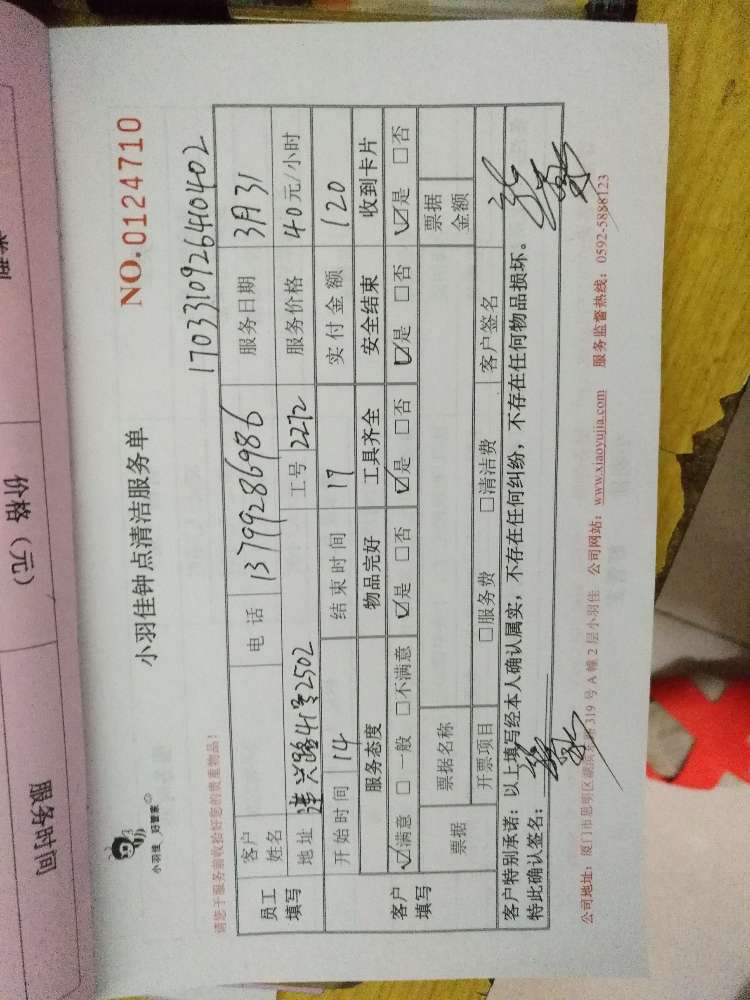 小羽佳 好管家
小羽佳钟点清洁服务单
NO.0124710
请您于服务前收拾好您的贵重物品！
170331092640402
员工填写
客户姓名
电话 13799286986
服务日期 3月31
地址 莲兴路41号2502
工号 2272
服务价格 40元/小时
开始时间 14
结束时间 17
实付金额 120
客户填写
服务态度 物品完好 工具齐全 安全结束 收到卡片
☑满意 □一般 □不满意 ☑是 □否 ☑是 □否 ☑是 □否 ☑是 □否
票据 票据名称 票据金额
开票项目 □服务费 □清洁费 客户签名
客户特别承诺：以上填写经本人确认属实，不存在任何纠纷，不存在任何物品损坏。
特此确认签名：
公司地址：厦门市思明区 319号A幢2层小羽佳 公司网站：www.xiaoyujia.com 服务监督热线：0592-5888123
类型
价格（元）
服务时间